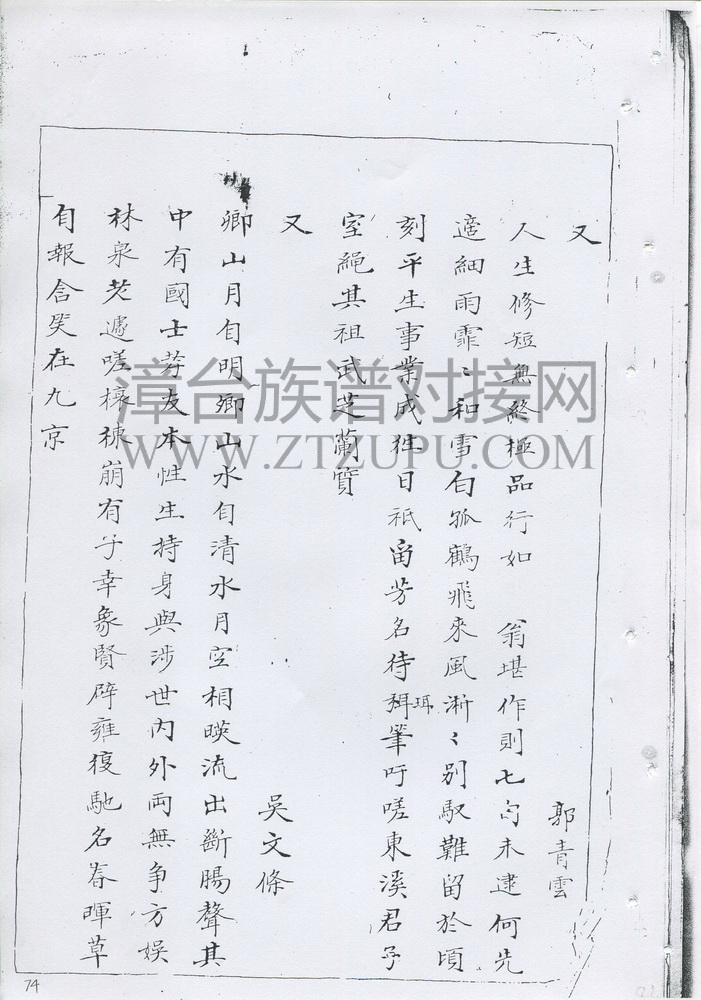 又
郭青雲
人生修短無終極品行如 翁堪作則七旬未逮何先
適細雨霏〻和雪白孤鶴飛來風淅〻別馭難留於頃
刻平生事業成往日祇留芳名待珥筆吁嗟東溪君子
室繩其祖武芝蘭質
又
吳文條
鄉山月自明鄉山水自清水月空相暎流出斷腸聲其
中有國士孝友本性生持身與涉世內外両無争方娛
林泉老遽嗟榱棟崩有子幸象賢辟雍復馳名春暉草
自報含笑在九京
漳台族谱对接网
WWW.ZTZUPU.COM
74